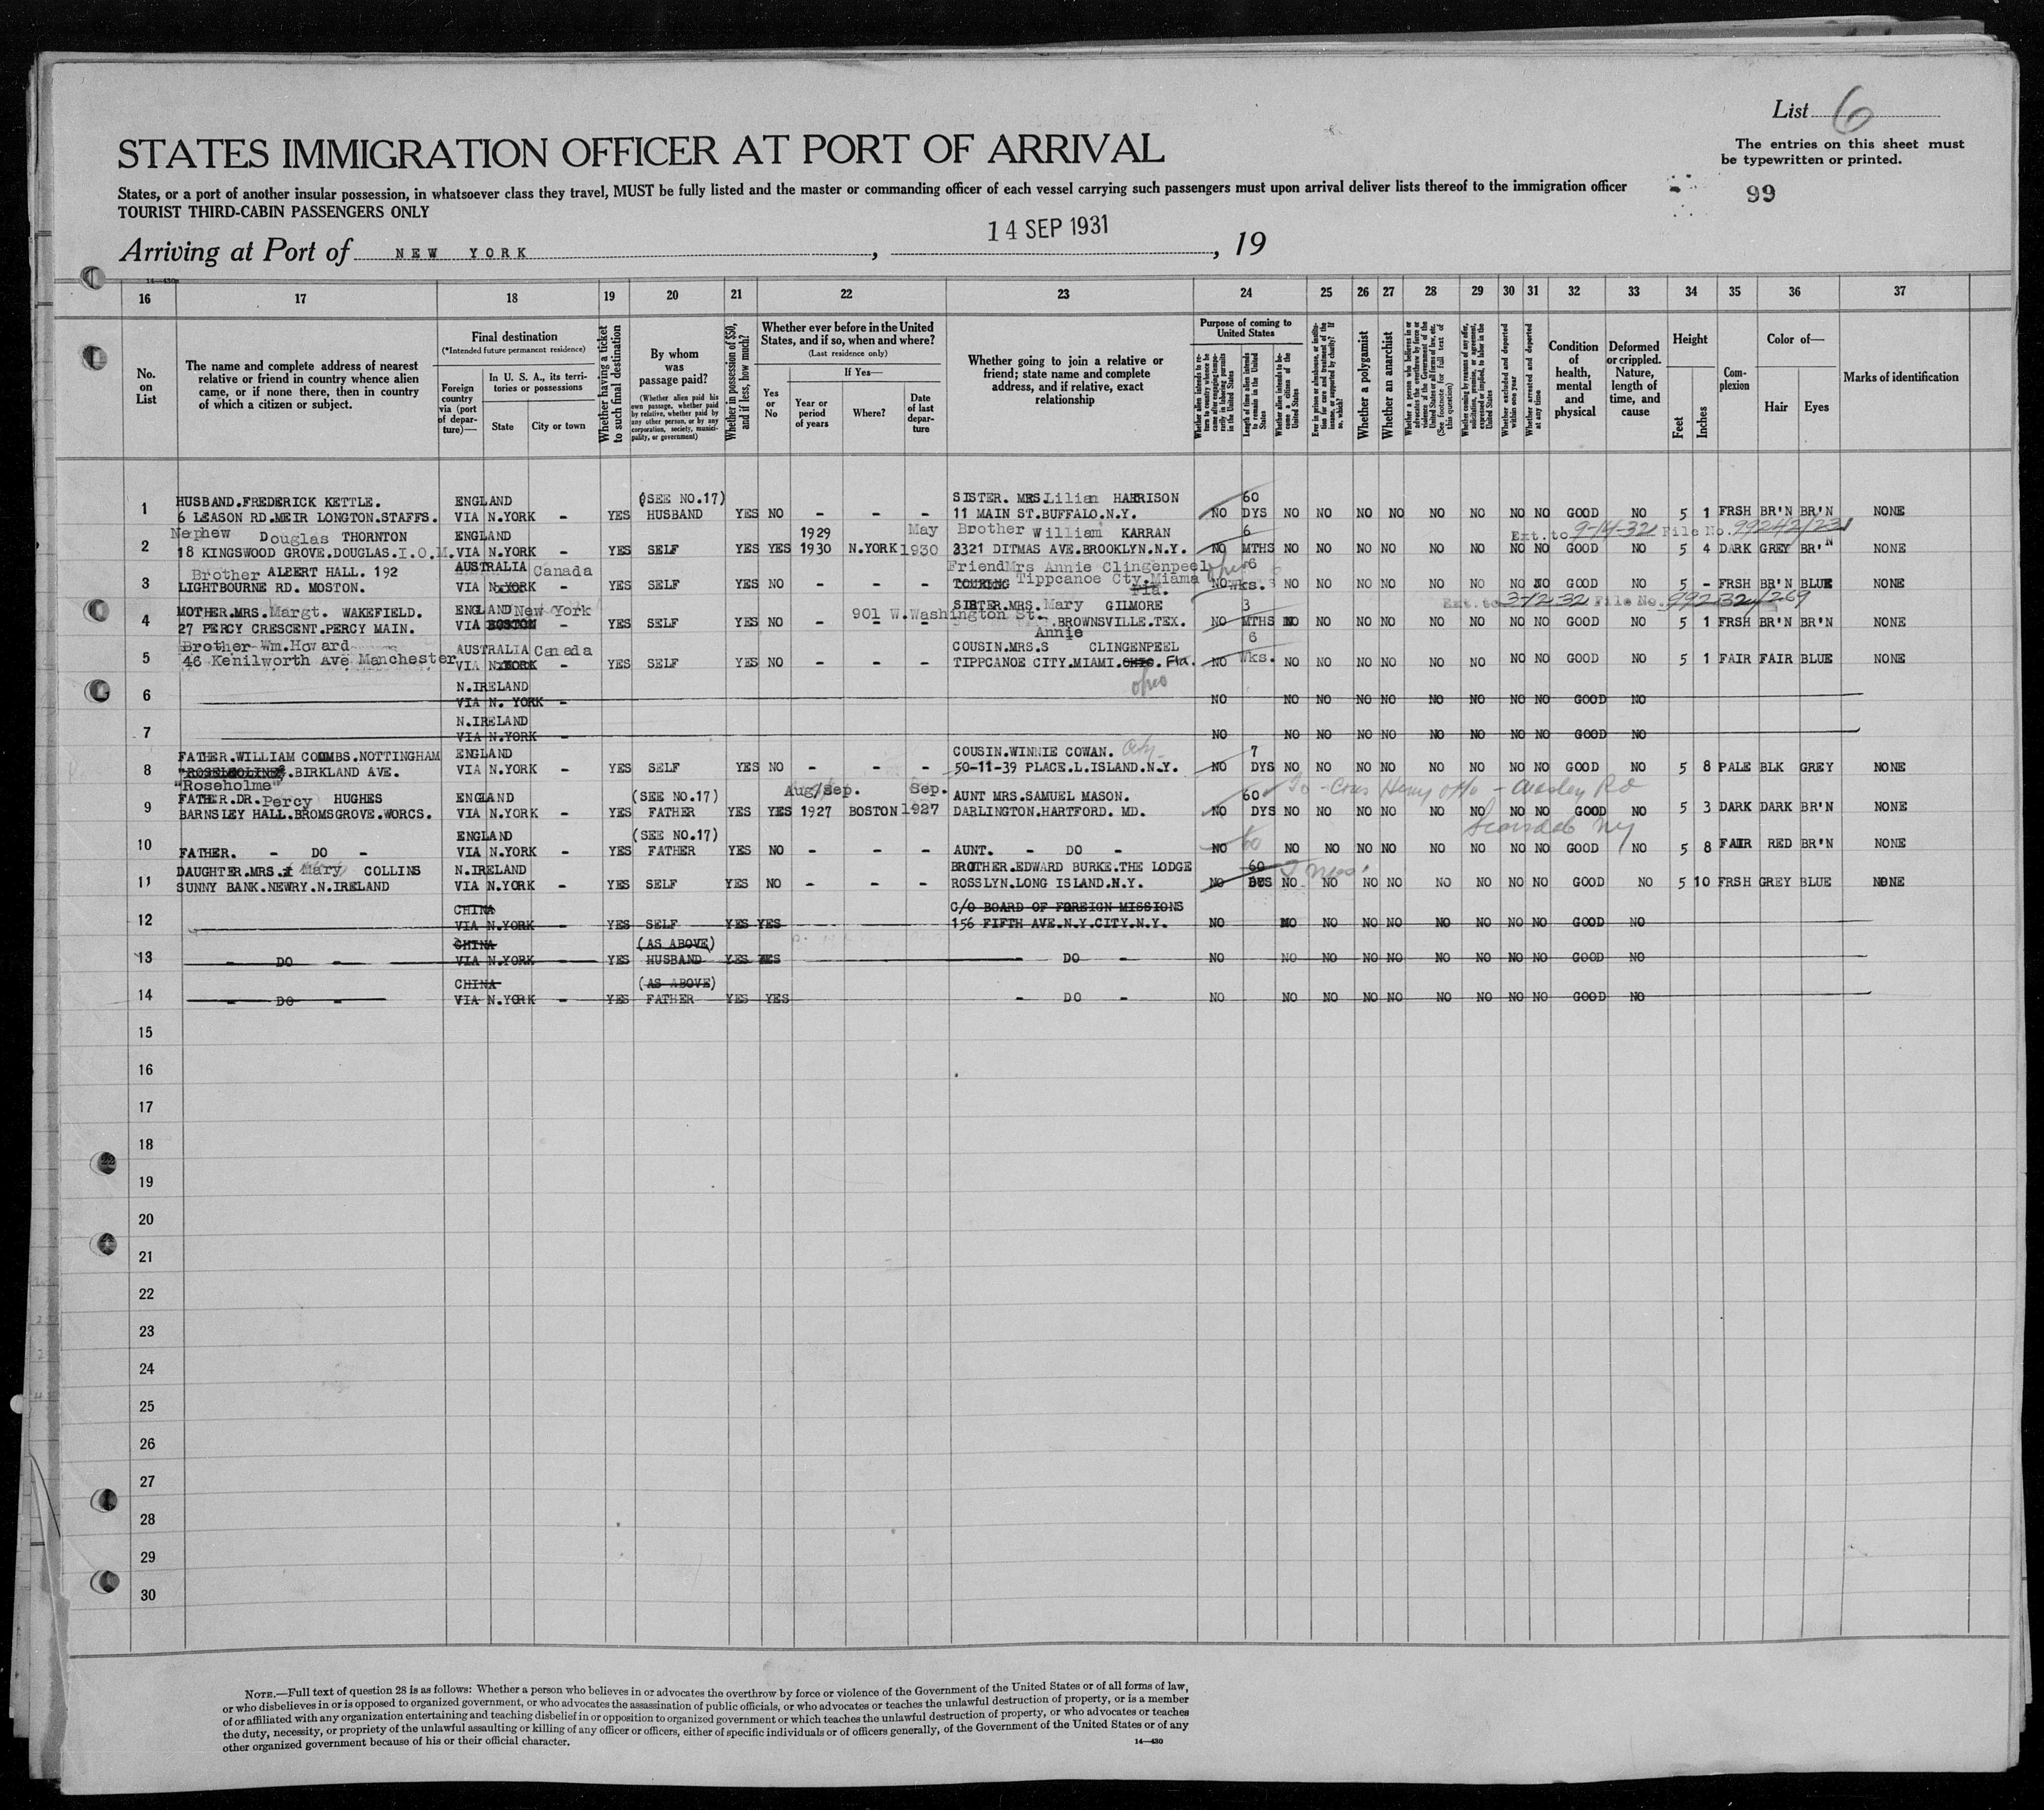 List 6
STATES IMMIGRATION OFFICER AT PORT OF ARRIVAL
The entries on this sheet must
be typewritten or printed.
States, or a port of another insular possession, in whatsoever class they travel, MUST be fully listed and the master or commanding officer of each vessel carrying such passengers must upon arrival deliver lists thereof to the immigration officer
99
TOURIST THIRD-CABIN PASSENGERS ONLY
Arriving at Port of NEW YORK, 14 SEP 1931, 19
14—430
16 17 18 19 20 21 22 23 24 25 26 27 28 29 30 31 32 33 34 35 36 37
No. on List
The name and complete address of nearest
relative or friend in country whence alien
came, or if none there, then in country
of which a citizen or subject.
Final destination
(*Intended future permanent residence)
Foreign country via (port of departure)—
In U. S. A., its territories or possessions
State
City or town
Whether having a ticket to such final destination
By whom was passage paid?
(Whether alien paid his own passage, whether paid by relative, whether paid by any other person, or by any corporation, society, municipality, or government)
Whether in possession of $50, and if less, how much?
Whether ever before in the United States, and if so, when and where?
(Last residence only)
Yes or No
If Yes—
Year or period of years
Where?
Date of last departure
Whether going to join a relative or
friend; state name and complete
address, and if relative, exact
relationship
Purpose of coming to United States
Whether alien intends to return to country whence he came after engaging temporarily in laboring pursuits in the United States
Length of time alien intends to remain in the United States
Whether alien intends to become a citizen of the United States
Ever in prison or almshouse, or institution for care and treatment of the insane, or supported by charity? If so, which?
Whether a polygamist
Whether an anarchist
Whether a person who believes in or advocates the overthrow by force or violence of the Government of the United States or all forms of law, etc. (See footnote for full text of this question)
Whether coming by reason of any offer, solicitation, promise, or agreement, expressed or implied, to labor in the United States
Whether excluded and deported within one year
Whether arrested and deported at any time
Condition of health, mental and physical
Deformed or crippled. Nature, length of time, and cause
Height
Feet
Inches
Complexion
Color of—
Hair
Eyes
Marks of identification
HUSBAND.FREDERICK KETTLE. ENGLAND (SEE NO.17) SISTER. MRS.Lilian HARRISON 60
1 6 LEASON RD.MEIR LONGTON.STAFFS. VIA N.YORK - YES HUSBAND YES NO - - - 11 MAIN ST.BUFFALO.N.Y. NO DYS NO NO NO NO NO NO NO NO GOOD NO 5 1 FRSH BR'N BR'N NONE
Nephew Douglas THORNTON ENGLAND 1929 May Brother William KARRAN 6 Ext. to 9-14-32 File No. 99242/231
2 18 KINGSWOOD GROVE.DOUGLAS.I.O.M. VIA N.YORK - YES SELF YES YES 1930 N.YORK 1930 3321 DITMAS AVE.BROOKLYN.N.Y. NO MTHS NO NO NO NO NO NO NO NO GOOD NO 5 4 DARK GREY BR'N NONE
Brother ALBERT HALL. 192 AUSTRALIA Canada Friend Mrs Annie Clingenpeel Ohio 6
3 LIGHTBOURNE RD. MOSTON. VIA N.YORK - YES SELF YES NO - - - TOURING Tippcanoe Cty.Miama Fla. NO wks. NO NO NO NO NO NO NO NO GOOD NO 5 - FRSH BR'N BLUE NONE
MOTHER.MRS.Margt. WAKEFIELD. ENGLAND New York 901 W.Washington St. SISTER.MRS.Mary GILMORE 3 Ext. to 3-12-32 File No. 99232/269
4 27 PERCY CRESCENT.PERCY MAIN. VIA BOSTON - YES SELF YES NO - - - .BROWNSVILLE.TEX. NO MTHS NO NO NO NO NO NO NO NO GOOD NO 5 1 FRSH BR'N BR'N NONE
Brother Wm.Howard AUSTRALIA Canada COUSIN.MRS.S Annie CLINGENPEEL 6
5 46 Kenilworth Ave Manchester VIA N.YORK - YES SELF YES NO - - - TIPPCANOE CITY.MIAMI.OHIO. Fla. NO Wks. NO NO NO NO NO NO NO NO GOOD NO 5 1 FAIR FAIR BLUE NONE
N.IRELAND ohio
6 VIA N. YORK - NO NO NO NO NO NO NO NO NO GOOD NO
N.IRELAND
7 VIA N.YORK - NO NO NO NO NO NO NO NO NO GOOD NO
FATHER.WILLIAM COOMBS.NOTTINGHAM ENGLAND COUSIN.WINNIE COWAN. 7
8 .BIRKLAND AVE. VIA N.YORK - YES SELF YES NO - - - 50-11-39 PLACE.L.ISLAND.N.Y. NO DYS NO NO NO NO NO NO NO NO GOOD NO 5 8 PALE BLK GREY NONE
"Roseholme"
FATHER.DR.Percy HUGHES ENGLAND (SEE NO.17) Aug/Sep. Sep. AUNT MRS.SAMUEL MASON. 60 To - Cous Henry Otto - Rd
9 BARNSLEY HALL.BROMSGROVE.WORCS. VIA N.YORK - YES FATHER YES YES 1927 BOSTON 1927 DARLINGTON.HARTFORD. MD. NO DYS NO NO NO NO NO NO NO NO GOOD NO 5 3 DARK DARK BR'N NONE
ENGLAND (SEE NO.17) Scarsdale NY
10 FATHER. - DO - VIA N.YORK - YES FATHER YES NO - - - AUNT. - DO - NO 60 NO NO NO NO NO NO NO NO GOOD NO 5 8 FAIR RED BR'N NONE
DAUGHTER.MRS. Mary COLLINS N.IRELAND BROTHER.EDWARD BURKE.THE LODGE 60
11 SUNNY BANK.NEWRY.N.IRELAND VIA N.YORK - YES SELF YES NO - - - ROSSLYN.LONG ISLAND.N.Y. NO DYS NO NO NO NO NO NO NO NO GOOD NO 5 10 FRSH GREY BLUE NONE
CHINA C/O BOARD OF FOREIGN MISSIONS
12 VIA N.YORK - YES SELF YES YES 156 FIFTH AVE.N.Y.CITY.N.Y. NO NO NO NO NO NO NO NO NO GOOD NO
CHINA (AS ABOVE)
13 - DO - VIA N.YORK - YES HUSBAND YES YES - DO - NO NO NO NO NO NO NO NO NO GOOD NO
CHINA (AS ABOVE)
14 - DO - VIA N.YORK - YES FATHER YES YES - DO - NO NO NO NO NO NO NO NO NO GOOD NO
15
16
17
18
19
20
21
22
23
24
25
26
27
28
29
30
NOTE.—Full text of question 28 is as follows: Whether a person who believes in or advocates the overthrow by force or violence of the Government of the United States or of all forms of law,
or who disbelieves in or is opposed to organized government, or who advocates the assassination of public officials, or who advocates or teaches the unlawful destruction of property, or is a member
of or affiliated with any organization entertaining and teaching disbelief in or opposition to organized government or which teaches the unlawful destruction of property, or who advocates or teaches
the duty, necessity, or propriety of the unlawful assaulting or killing of any officer or officers, either of specific individuals or of officers generally, of the Government of the United States or of any
other organized government because of his or their official character.
14—430